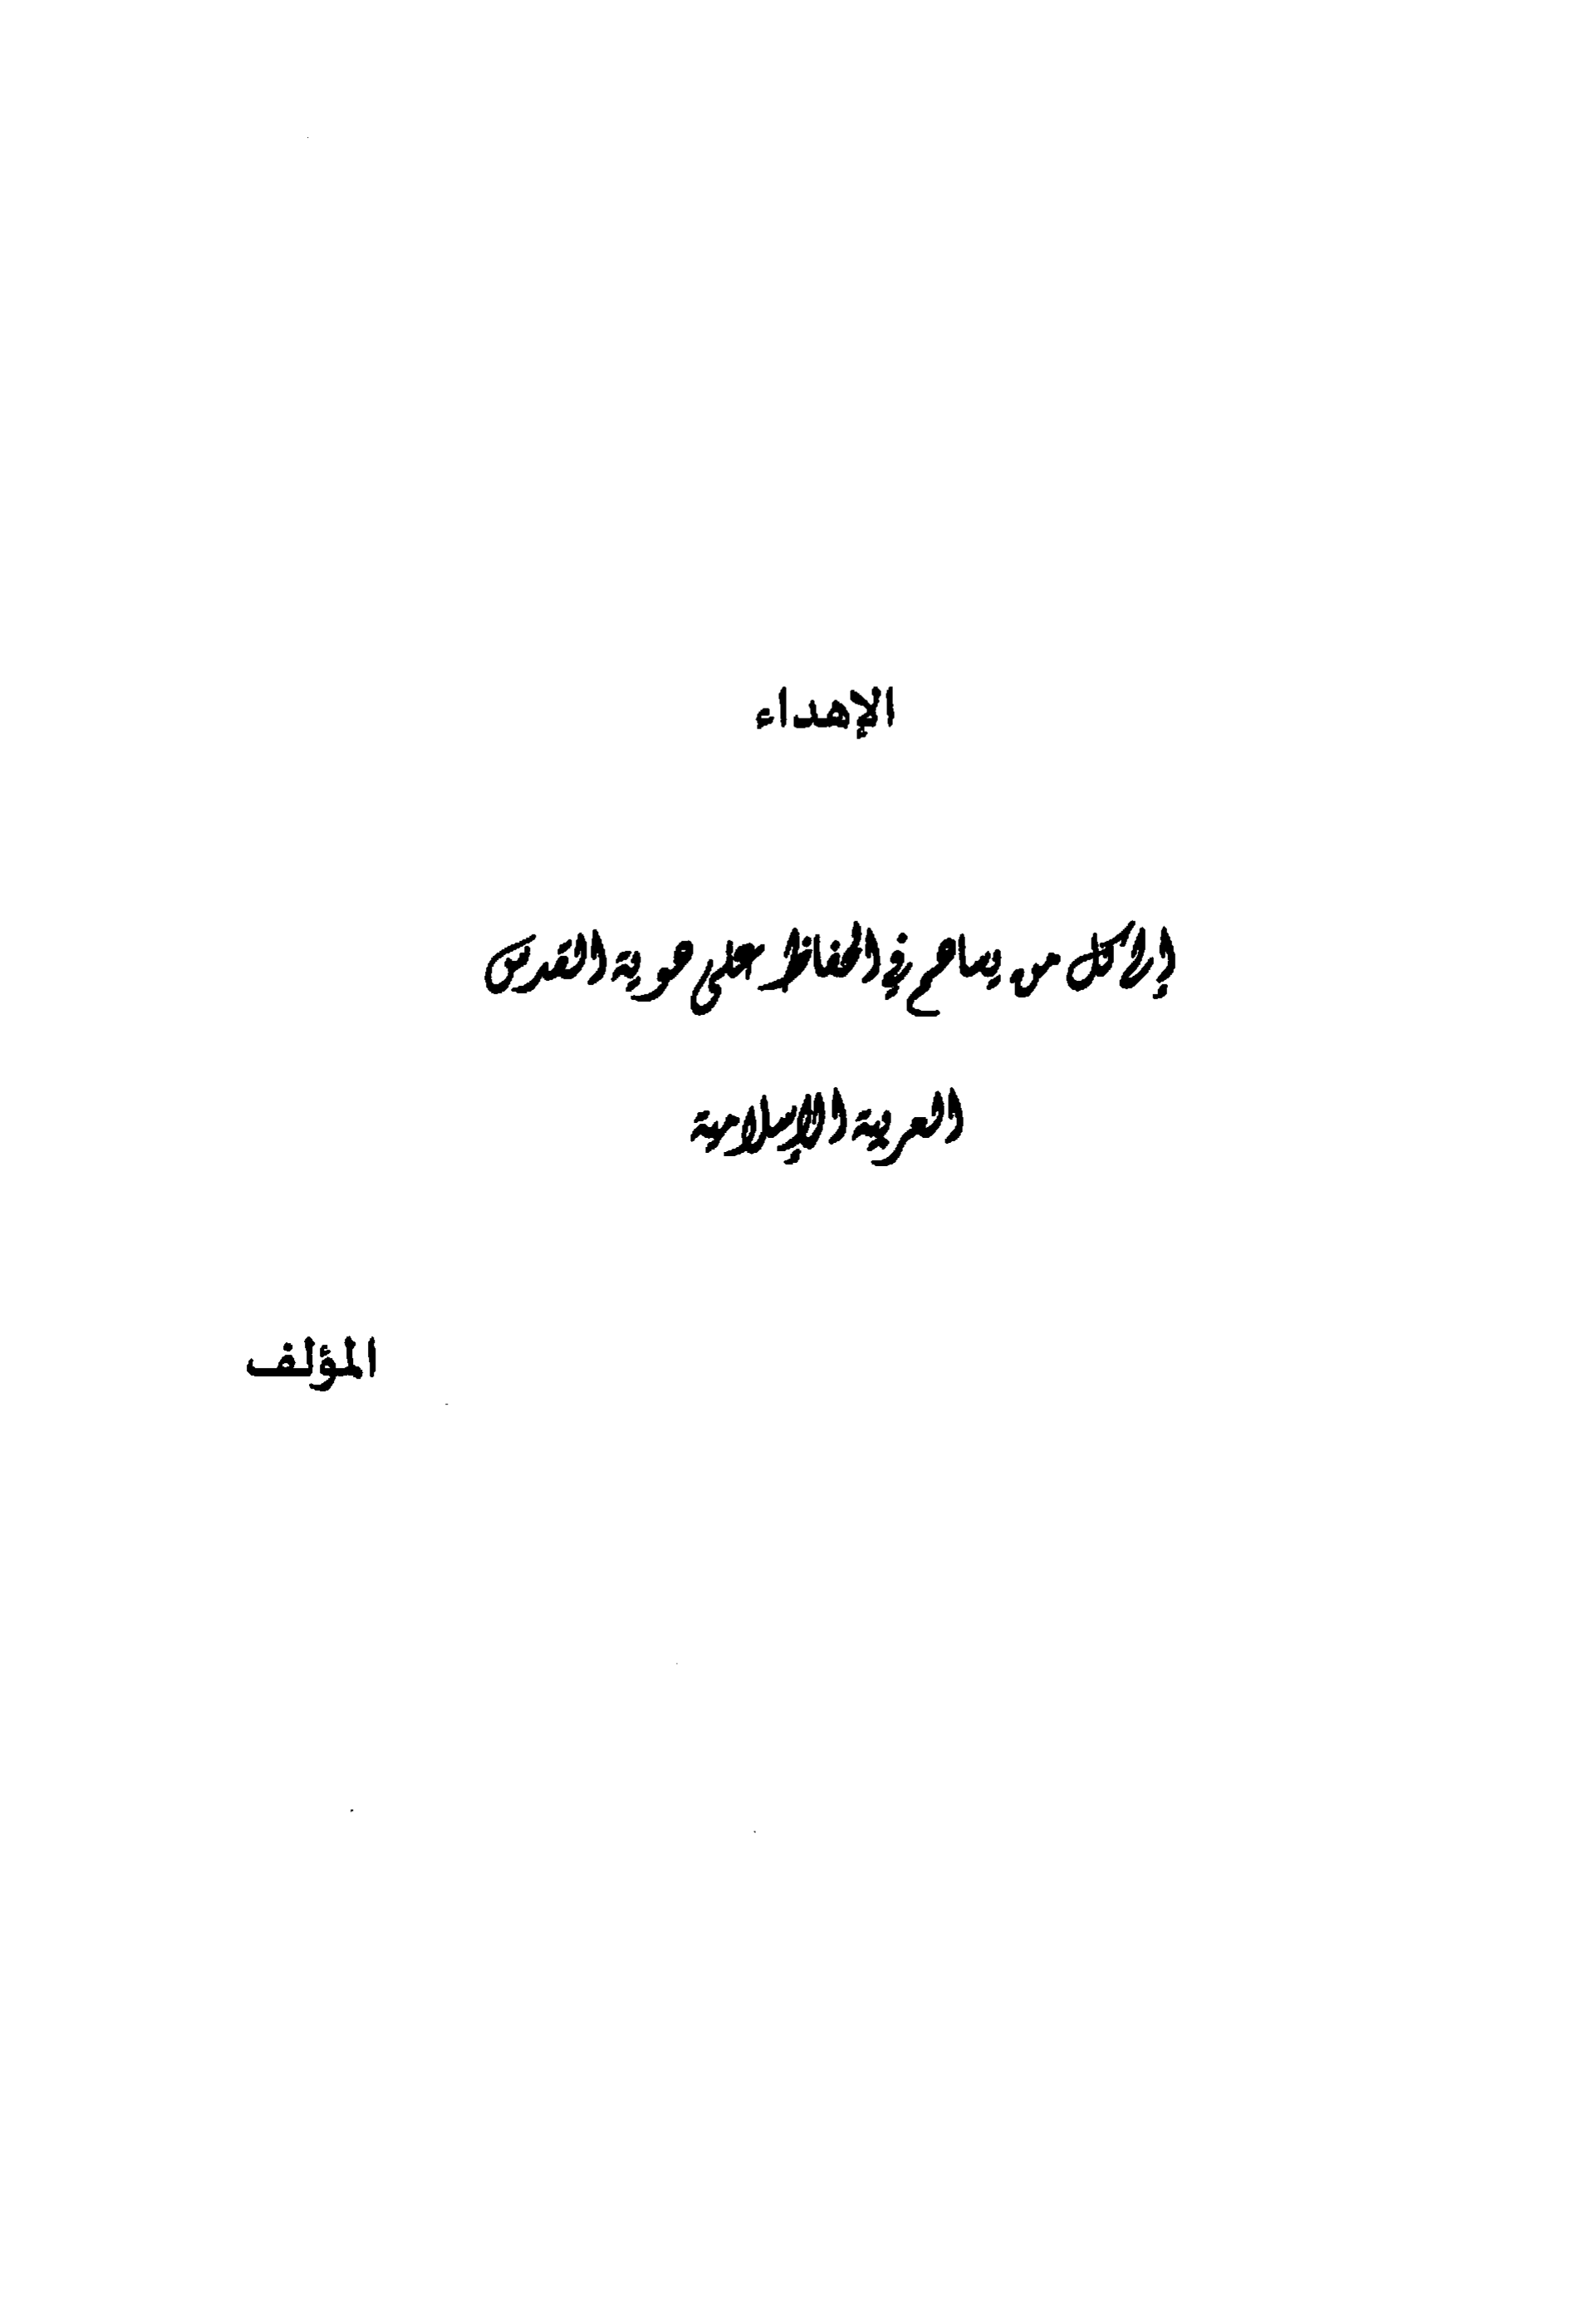 الإهداء
إلى كل من يساهم في الحفاظ على هوية القدس
العربية الإسلامية
المؤلف